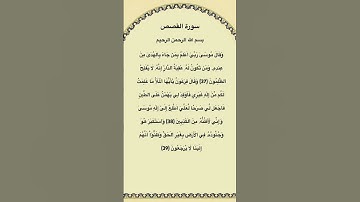 سورة القصص
بسم الله الرحمن الرحيم
وَقَالَ مُوسَى رَبِّي أَعْلَمُ بِمَن جَاءَ بِالْهُدَى مِنْ
عِندِهِ وَمَن تَكُونُ لَهُ عَاقِبَةُ الدَّارِ إِنَّهُ لَا يُفْلِحُ
الظَّالِمُونَ (37) وَقَالَ فِرْعَوْنُ يَا أَيُّهَا الْمَلَأُ مَا عَلِمْتُ
لَكُم مِّنْ إِلَهٍ غَيْرِي فَأَوْقِدْ لِي يَا هَامَانُ عَلَى الطِّينِ
فَاجْعَل لِّي صَرْحًا لَّعَلِّي أَطَّلِعُ إِلَى إِلَهِ مُوسَى
وَإِنِّي لَأَظُنُّهُ مِنَ الْكَاذِبِينَ (38) وَاسْتَكْبَرَ هُوَ
وَجُنُودُهُ فِي الْأَرْضِ بِغَيْرِ الْحَقِّ وَظَنُّوا أَنَّهُمْ
إِلَيْنَا لَا يُرْجَعُونَ (39)